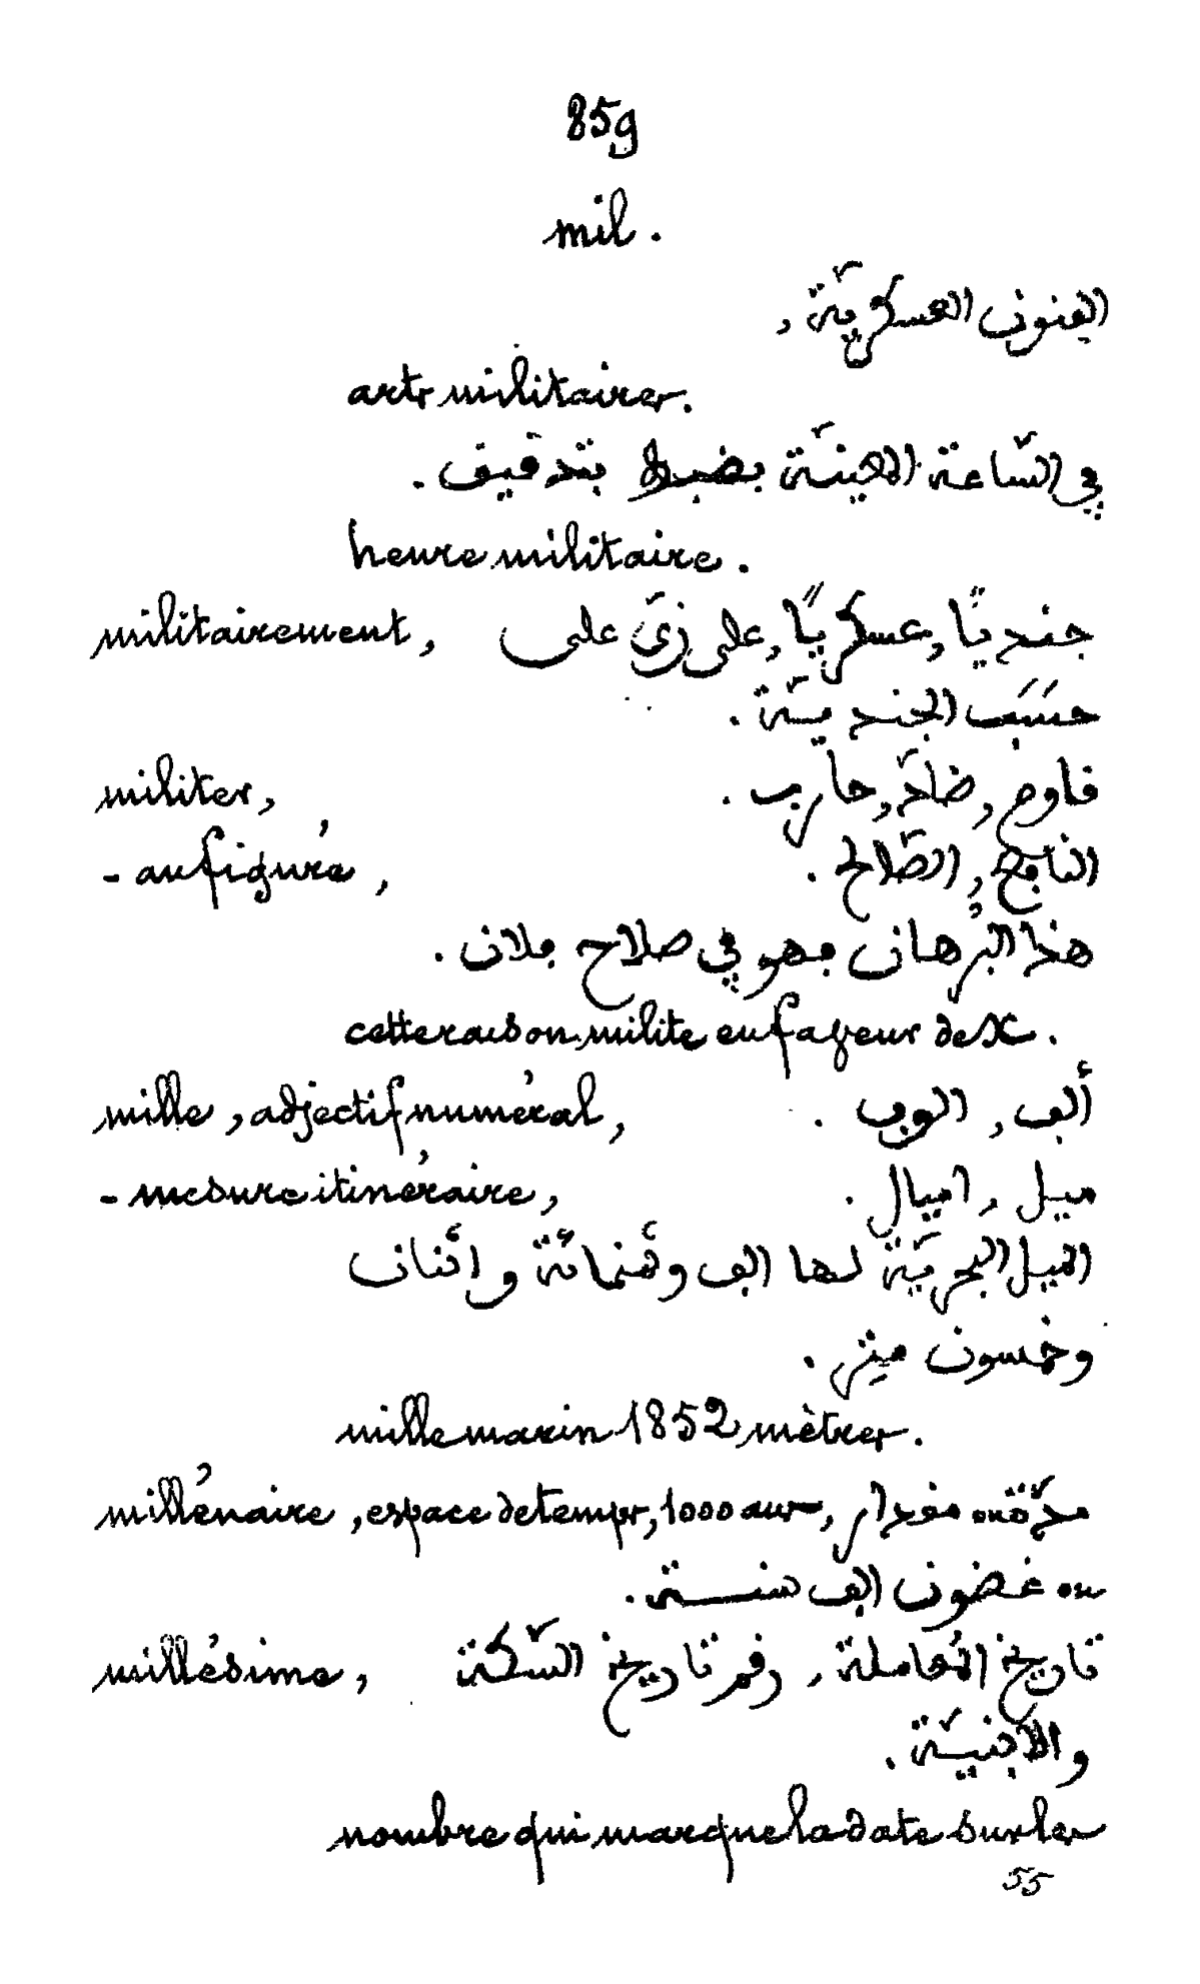 859
mil.
الفنون العسكريّة,
arts militaires.
في السّاعة المعيّنة بضبط بتدقيق.
heure militaire.
militairement, جنديًّا, عسكريًّا, على زيّ على
حسَبَ الجنديّة.
militer, قاوم, ضادّ, حارب.
- au figuré, النافع, الصّالح.
هذا البُرهان فهو في صلاح فلان.
cette raison milite en faveur de X.
mille, adjectif numéral, ألف, الوف.
- mesure itinéraire, ميل, اميال.
الميل البحريّة لها الف وثمنمائة واثنان
وخمسون ميتر.
mille marin 1852 mètres.
millénaire, espace de temps, 1000 ans, مدّة مقدار
غضون الف سنة.
millésime, تاريخ المُعاملة, رقم تاريخ السّكّة
والابنيّة.
nombre qui marque la date sur les
55